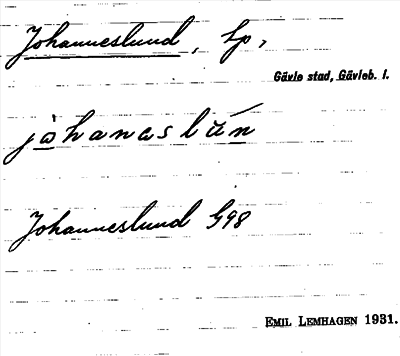 Johanneslund, lp,
Gävle stad, Gävleb. l.
jòhanəslún
Johanneslund G98
EMIL LEMHAGEN 1931.